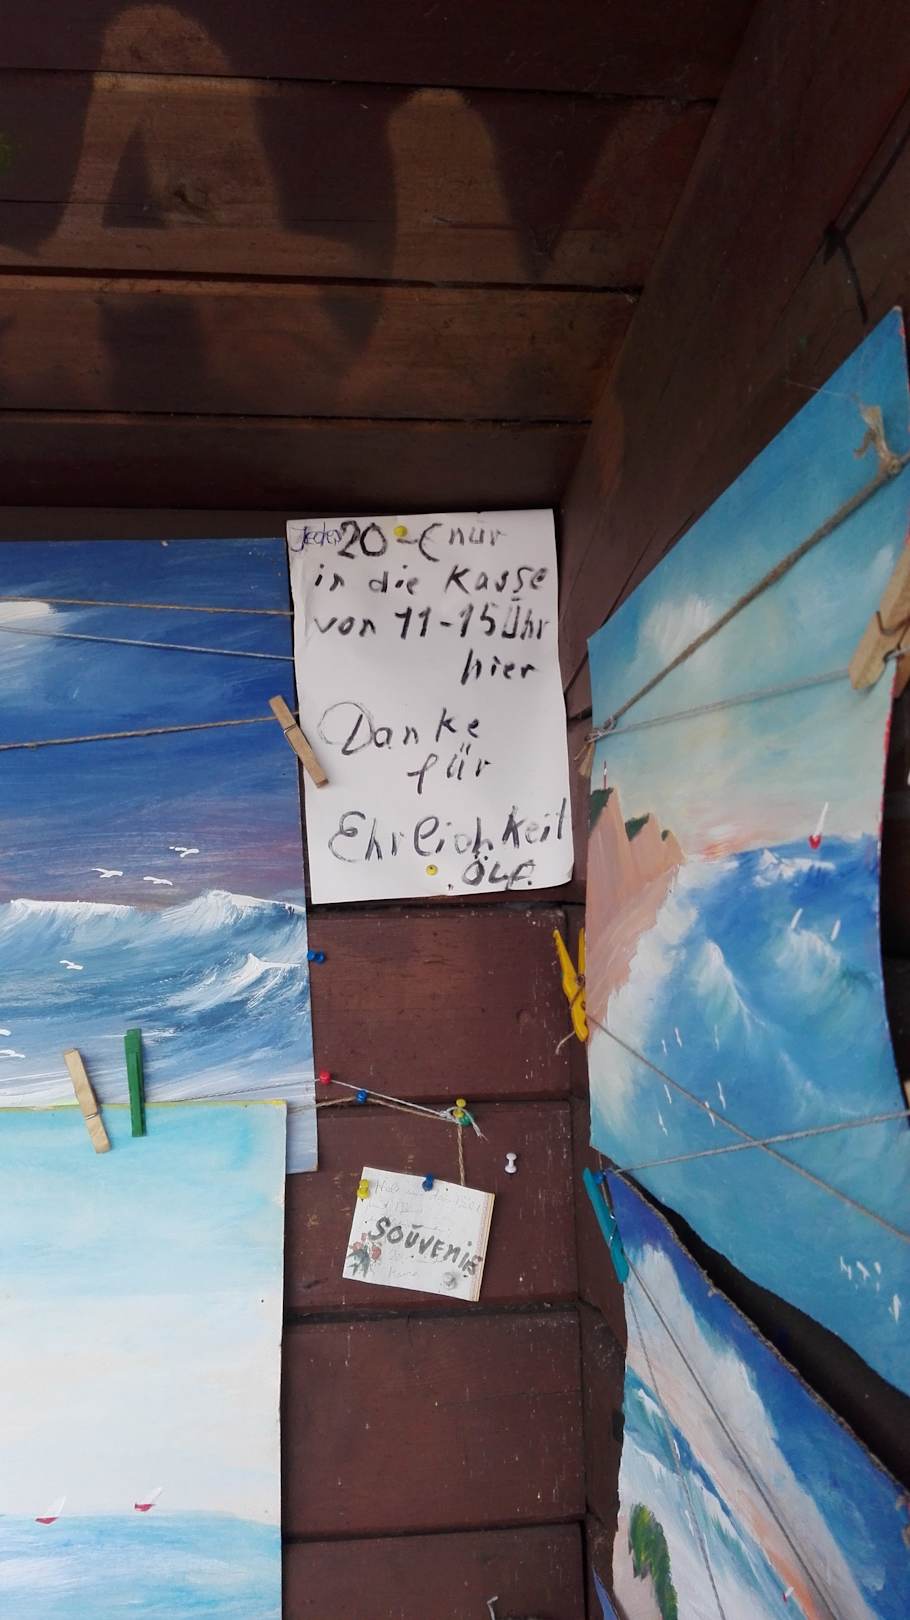 Jedes 20-€ nur
in die Kasse
von 11-15 Uhr
hier
Danke
für
Ehrlichkeit
SOUVENIR